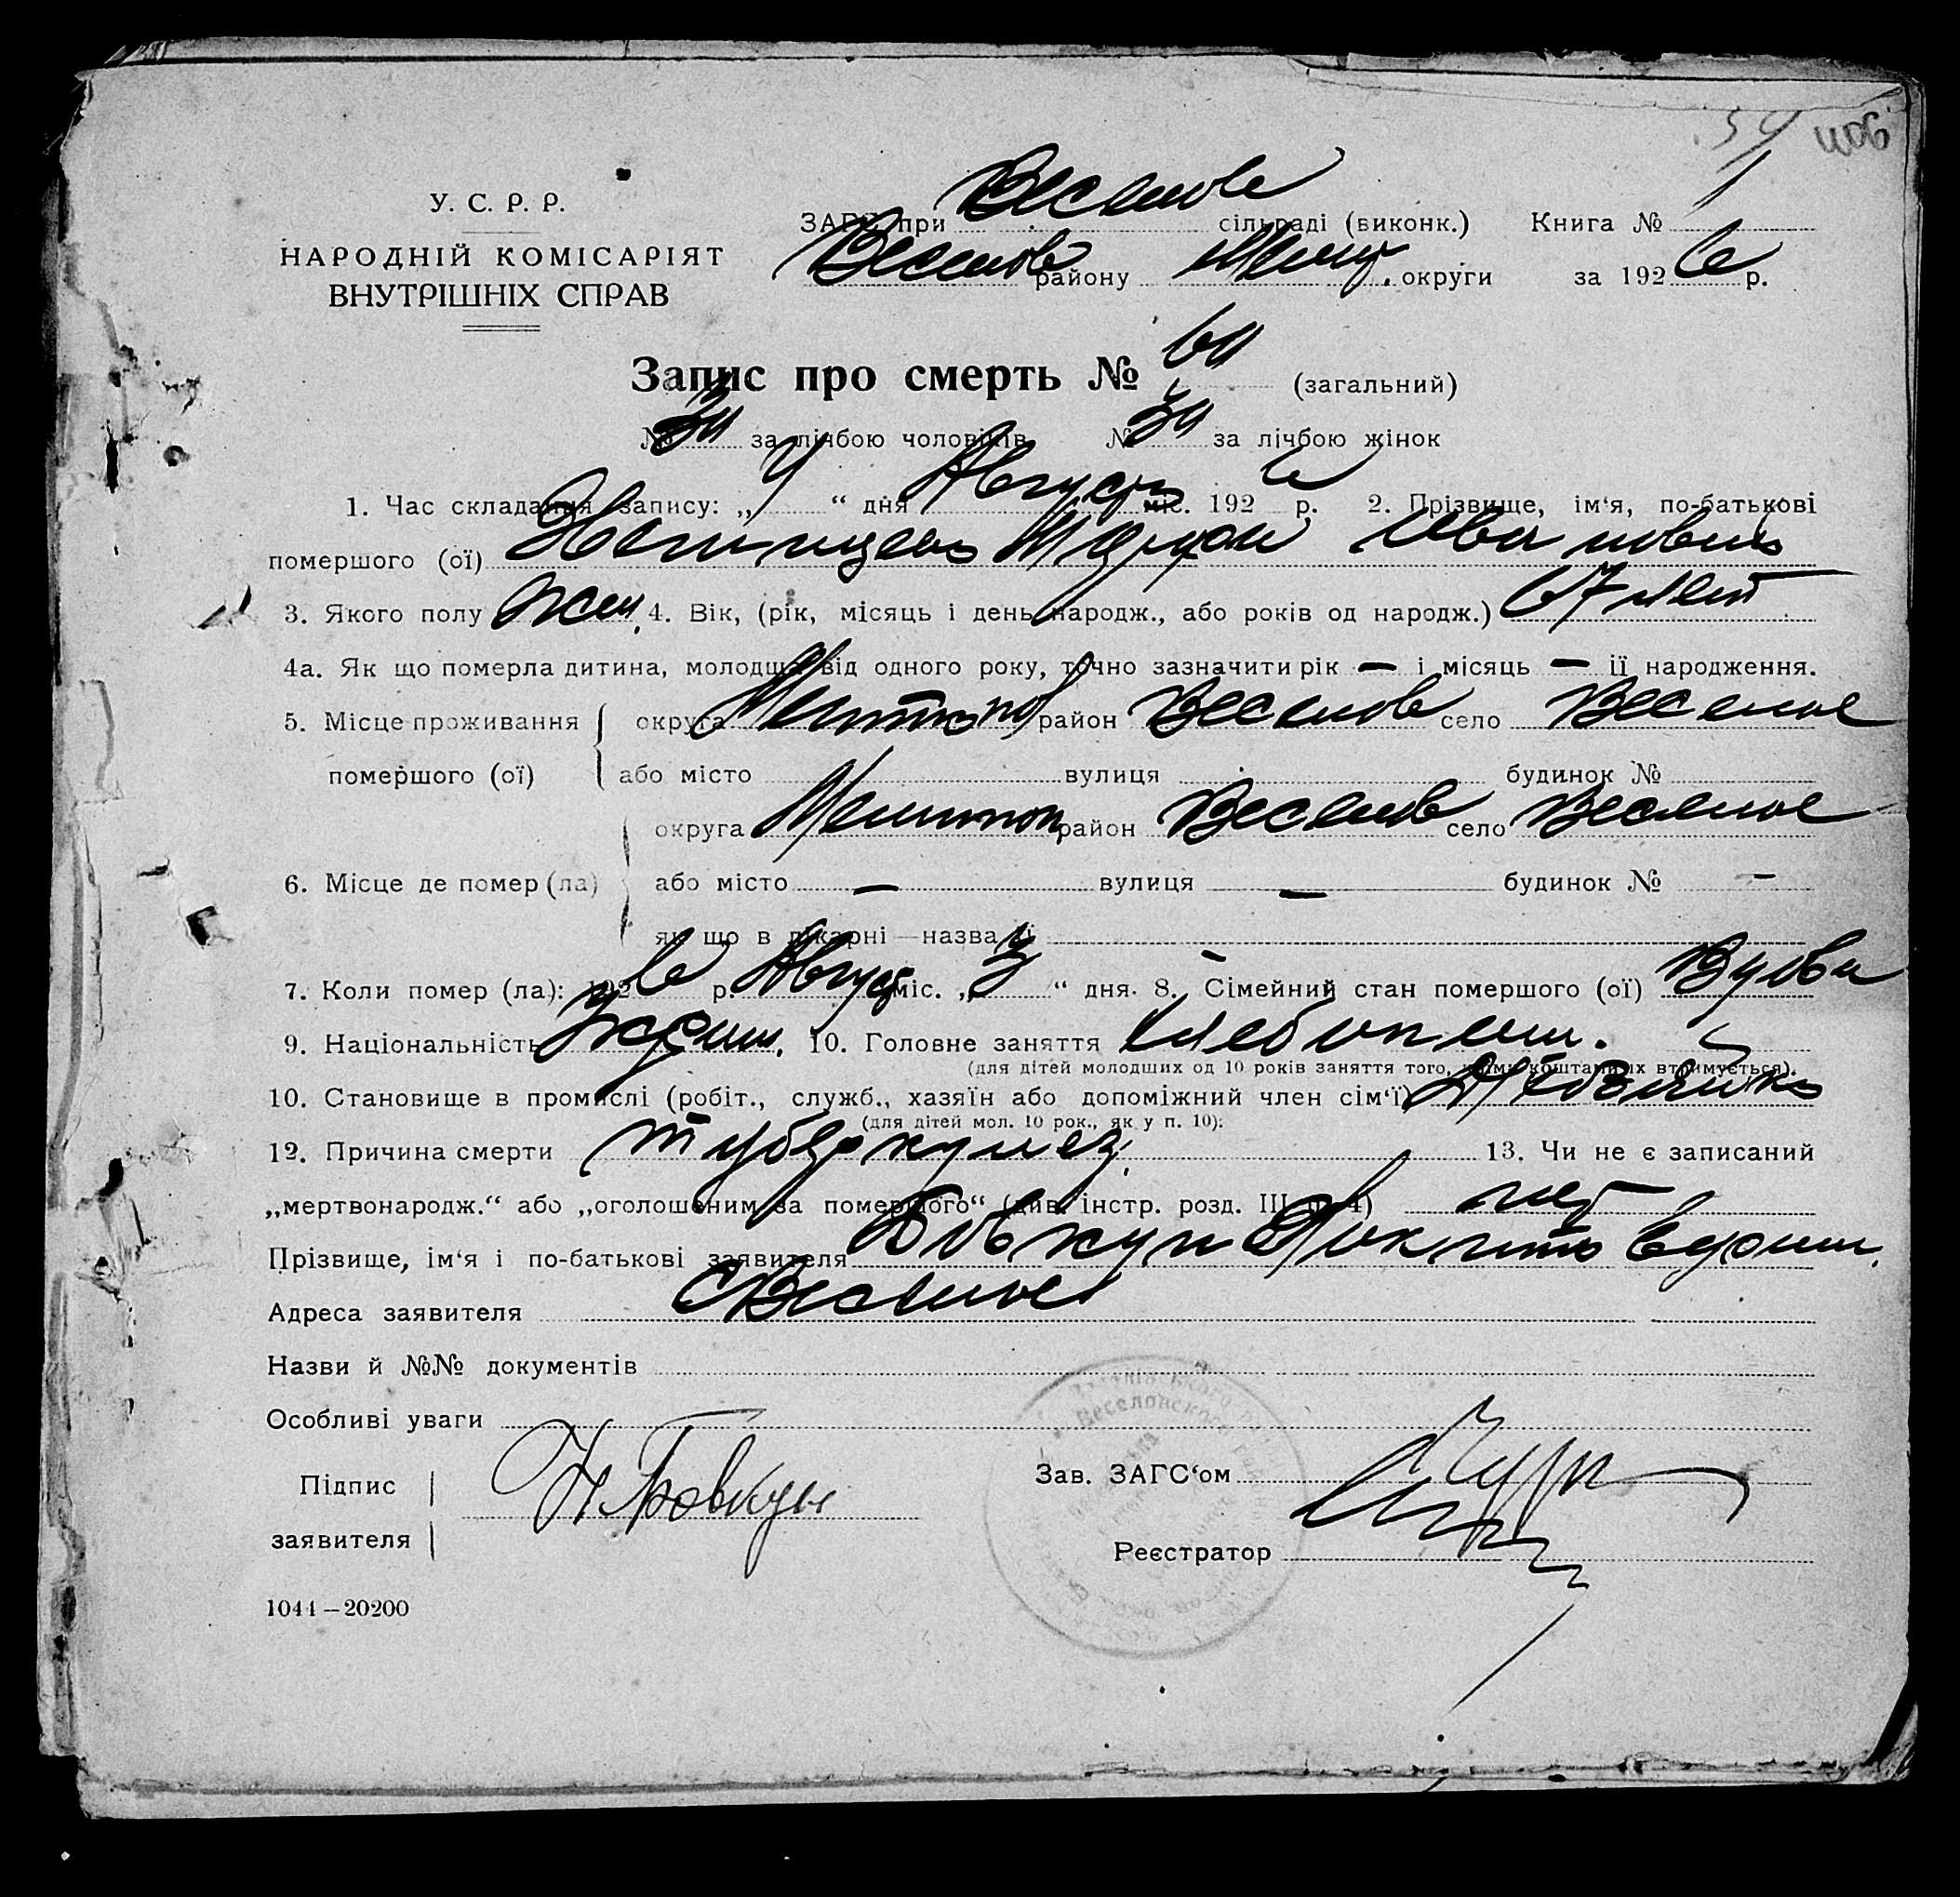 У. С. Р. Р.
НАРОДНІЙ КОМІСАРІЯТ
ВНУТРІШНІХ СПРАВ
ЗАГС при Веселов сільраді (виконк.) Книга №
Веселов району Мелит. округи за 1926 р.
Запис про смерть № (загальний)
№ за лічбою чоловіків № за лічбою жінок
1. Час складання запису: „ 4 “ дня Август міс. 1926 р. 2. Прізвище, ім‘я, по-батькові
помершого (ої) Ивановна
3. Якого полу Жен. 4. Вік, (рік, місяць і день народж., або років од народж.) 67 лет
4а. Як що померла дитина, молодша від одного року, точно зазначити рік — і місяць — її народження.
5. Місце проживання помершого (ої) округа Мелитоп район Веселов село Веселое
або місто вулиця будинок №
6. Місце де помер (ла) округа Мелитоп район Веселов село Веселое
або місто — вулиця — будинок № —
як що в лікарні—назва її
7. Коли помер (ла): 1926 р. Август міс. „ 3 “ дня. 8. Сімейний стан помершого (ої) Вдова
9. Національність Украин. 10. Головне заняття Хлебопаш.
(для дітей молодших од 10 років заняття того, чиїми коштами їх втримується).
10. Становище в промислі (робіт., служб., хазяїн або допоміжний член сім‘ї) Хозяйка
(для дітей мол. 10 рок., як у п. 10):
12. Причина смерти туберкулез. 13. Чи не є записаний
„мертвонародж.“ або „оголошеним за померлого“ (див. інстр. розд. III п. 4) нет
Прізвище, ім‘я і по-батькові заявителя Бовкун
Адреса заявителя с Веселое
Назви й №№ документів
Особливі уваги
Підпис заявителя Н Бовкун
Зав. ЗАГС‘ом
Реєстратор
1044—20200